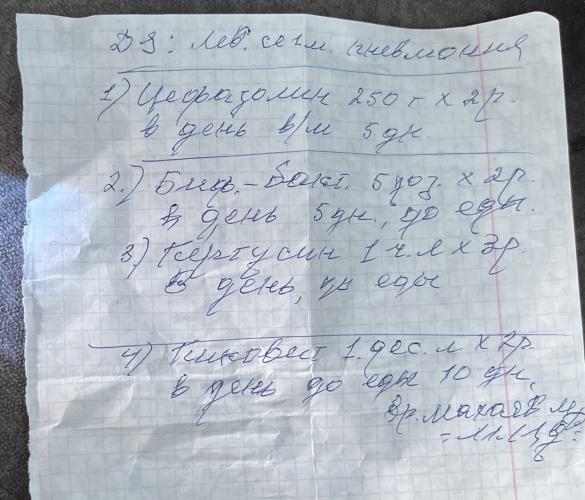 DS: лев. сегм. пневмония
1) Цефазолин 250 г х 2р.
в день в/м 5 дн.
2.) Биф.-Бакт. 5 доз. х 2р.
в день 5 дн., до еды.
3) 1 ч.л х 3р.
в день, до еды
4) 1. дес. л х 2р.
в день до еды 10 дн.
Вр. Махачев